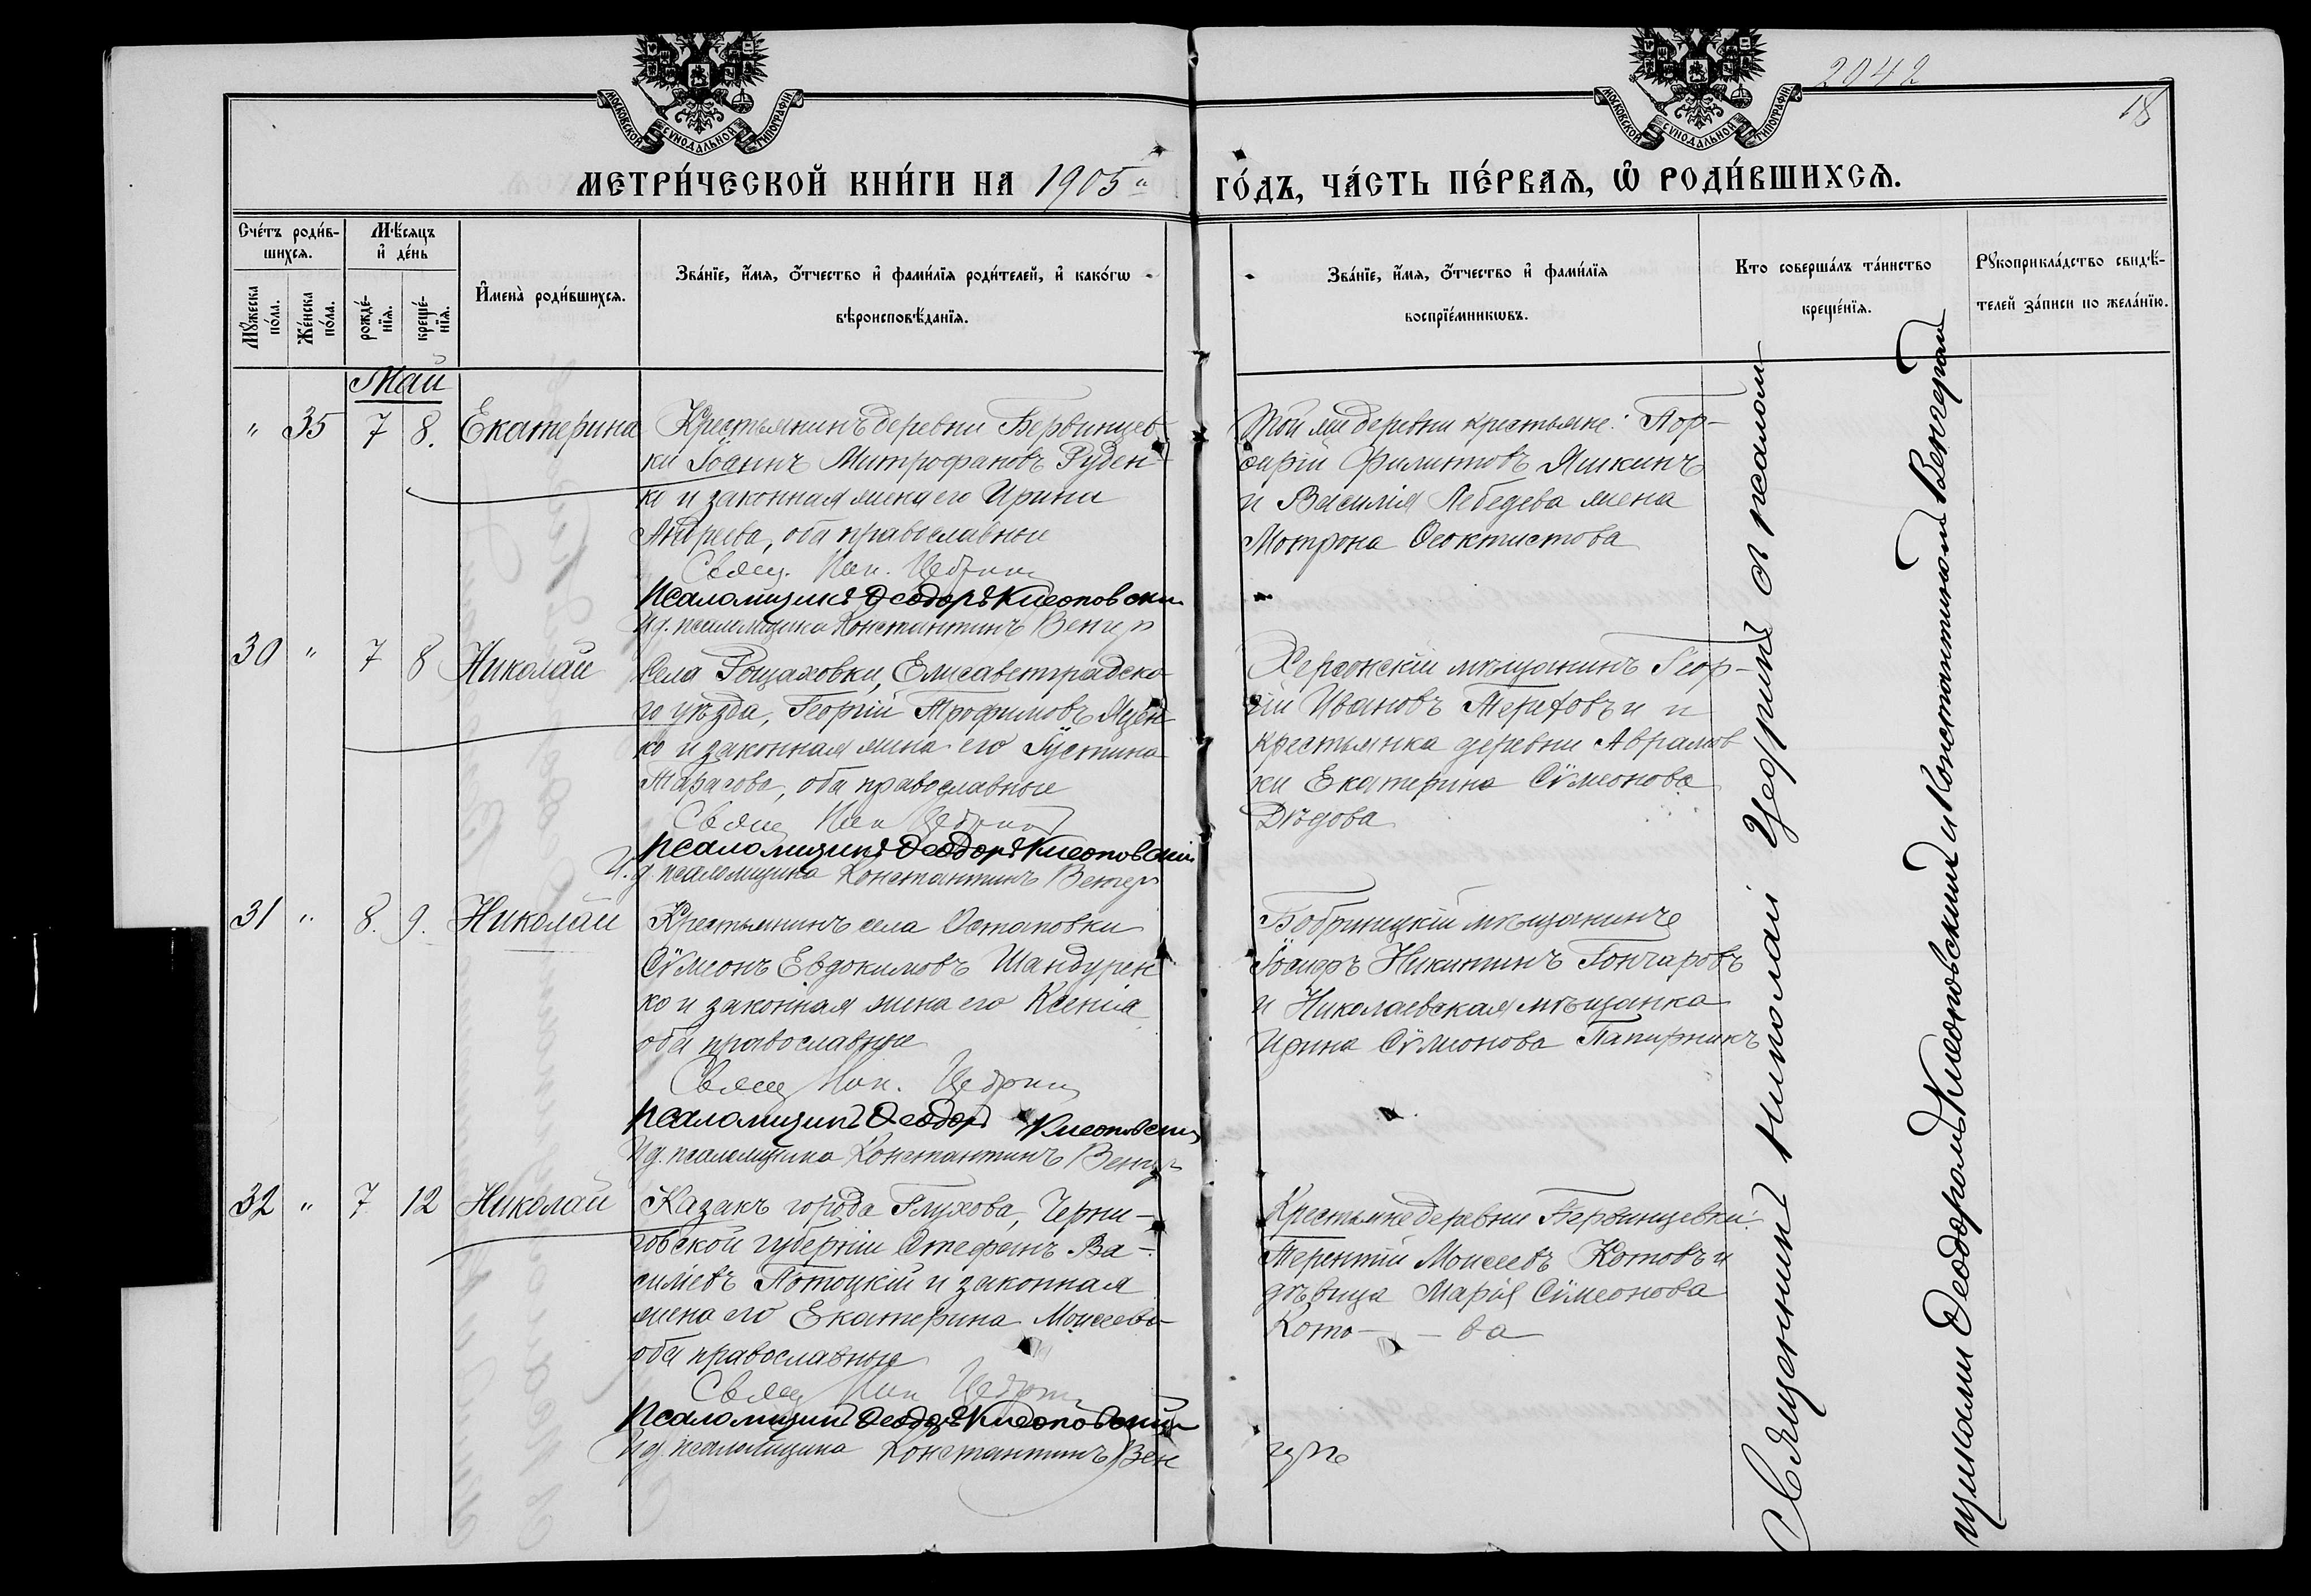 МОСКОВСКОЙ СУНОДАЛЬНОЙ ТИПОГРАФІИ
МОСКОВСКОЙ СУНОДАЛЬНОЙ ТИПОГРАФІИ
2042
18
МЕТРИ́ЧЕСКОЙ КНИ́ГИ НА 1905 ГО́ДЪ, ЧА́СТЬ ПЕ́РВАѦ, Ѽ РОДИ́ВШИХСѦ.
Сче́тъ роди́в-
шихсѧ.
Мꙋ́жеска по́ла.
Же́нска по́ла.
Мѣ́сяцъ
и҆ де́нь
рожде́-
нїѧ.
креще́-
нїѧ.
И҆мена̀ роди́вшихсѧ.
Зва́нїе, и҆́мѧ, ѻ҆́тчество и҆ фами́лїѧ роди́телей, и҆ како́гѡ
вѣроисповѣ́данїѧ.
Зва́нїе, и҆́мѧ, ѻ҆́тчество и҆ фами́лїѧ
воспрїе́мникѡвъ.
Кто соверша́лъ та́инство
креще́нїѧ.
Рꙋкоприкла́дство свидѣ́-
телей за́писи по жела́нїю.
Май
" 35 7 8. Екатерина
Крестьянинъ деревни Бервинцев-
ки Іоаннъ Митрофановъ Руден-
ко и законная жена его Ирина
Андреева, оба православные
Свящ. Ник. Цедрин
Псаломщикъ Ѳеодоръ Клеоповски
И д. псаломщика Константинъ Венгеръ
Той же деревни крестьяне: Пор-
фирій Филиповъ Яшкинъ
и Василія Лебедева жена
Мотрона Ѳеоктистова
30 " 7 8 Николай
Села Рощаховки, Елисаветградска-
го уѣзда, Георгій Трофимовъ Яцен-
ко и законная жена его Іустина
Тарасова, оба православные
Свящ Ник Цедрин
Псаломщикъ Ѳеодоръ Клеоповскій
И. д. псаломщика Константинъ Венгеръ
Херсонскій мѣщанинъ Геор-
гій Ивановъ и
крестьянка деревни Аврамов
ки Екатерина Сѵмеонова
Дѣдова
31 " 8. 9. Николай
Крестьянинъ села Остаповки
Сѵмеонъ Евдокимовъ Шандурен
ко и законная жена его Ксенія
оба православные
Свящ Ник. Цедрин
Псаломщикъ Ѳеодоръ Клеоповски
И д. псаломщика Константинъ Венгеръ
Бобринецкій мѣщанинъ
Никитинъ Гончаровъ
и Николаевская мѣщанка
Ирина Сѵмеонова Папирникъ
32 " 7 12 Николай
Казакъ города Глухова, Черни-
говской губерніи Стефанъ Ва-
сильевъ Потоцкій и законная
жена его Екатерина Моисеева
оба православные
Свящ Ник Цедрин
Псаломщикъ Ѳеодоръ Клеоповскій
И д. псаломщика Константинъ Вен
геръ
Крестьяне деревни Бервинцевки:
Терентій Моисеевъ Котовъ и
дѣвица Марія Сѵмеонова
Кото- - ва
Священникъ Николай Цедринъ съ псалом
щиками Ѳеодоромъ Клеоповскимъ и Константиномъ Венгеромъ